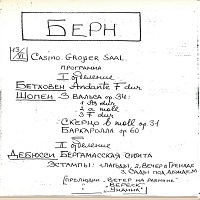 БЕРН
13/XI CASINO. GROßER SAAL
ПРОГРАММА
I отделение
БЕТХОВЕН Andante F dur
ШОПЕН 3 ВАЛЬСА op.34:
1 As dur
2 a moll
3 F dur
СКЕРЦО b moll op.31
БАРКАРОЛЛА op 60
II отделение
ДЕБЮССИ БЕРГАМАССКАЯ СЮИТА
ЭСТАМПЫ: 1. ПАГОДЫ, 2. ВЕЧЕР В ГРЕНАДЕ
3. САДЫ ПОД ДОЖДЕМ
(ПРЕЛЮДИИ „ВЕТЕР НА РАВНИНЕ"
„ВЕРЕСК"
„УНДИНА"